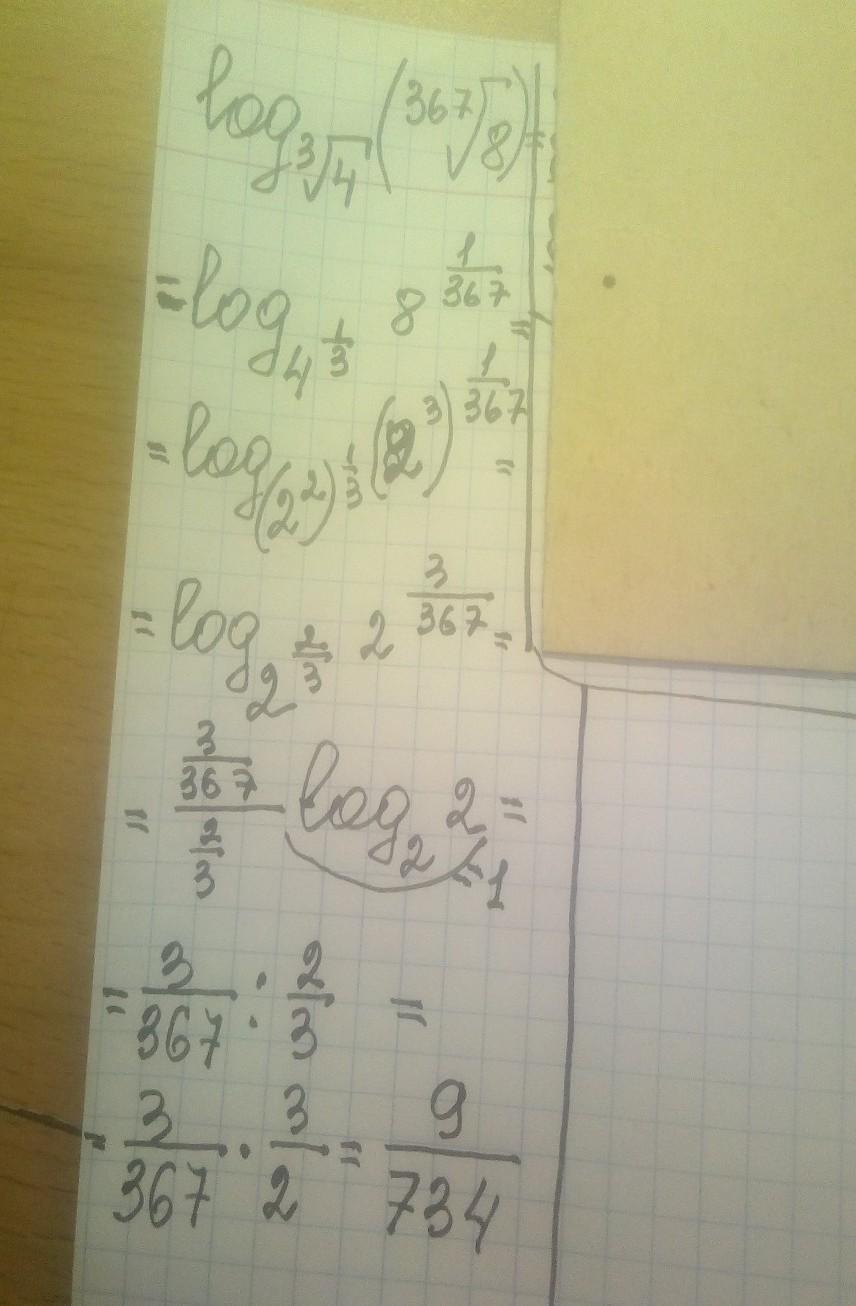 log_∛4 (³⁶⁷√8) =
= log_4^(1/3) 8^(1/367) =
= log_(2²)^(1/3) (2³)^(1/367) =
= log_2^(2/3) 2^(3/367) =
= (3/367)/(2/3) log_2 2 =
= 1
= 3/367 : 2/3 =
= 3/367 · 3/2 = 9/734